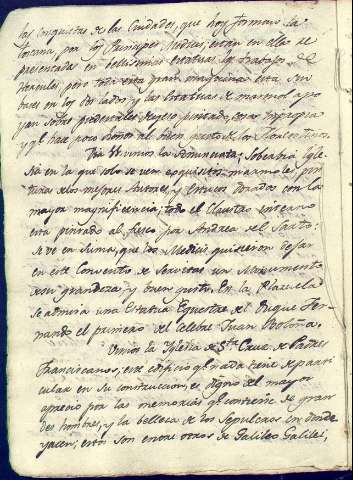 las Conquistas de las Ciudades, que hoy forman la
Toscana, por los Principes Medicis, están en ella re
presentadas en bellissimas estatuas los trabajos de
Hercules, pero toda esta gran maquina esta sin
bases en los dos lados, y las estatuas de marmol apo
yan sobre pedestales de yeso pintado, cosa impropia
y qe. hace poco honor al buen gusto de los Florentinos.
Dia vimos la Annunciata, Soberbia Igle
sia en la que solo se ven exquisitos marmoles, pin
turas de los mejores Autores, y Estucos dorados con la
mayor magnificencia; todo el Claustro interno
esta pintado al fresco por Andrea del Sarto:
se ve en suma, que los Medicis quisieron dejar
en este Convento de Servitas un Monumento
de su grandeza y buen gusto. En la Plazuela
se admira una Estatua Equestre del Duque Fer-
nando el primero del Celebre Juan Boloña.
Vimos la Iglesia de Sta. Cruz de Padres
Franciscanos; este edificio qe. nada tiene de parti
cular en su construccion, es digno del mayor
aprecio por las memorias qe. contiene de gran
des hombres, y la belleza de los Sepulcros en donde
yacen; estos son entre otros de Galileo Galilei,